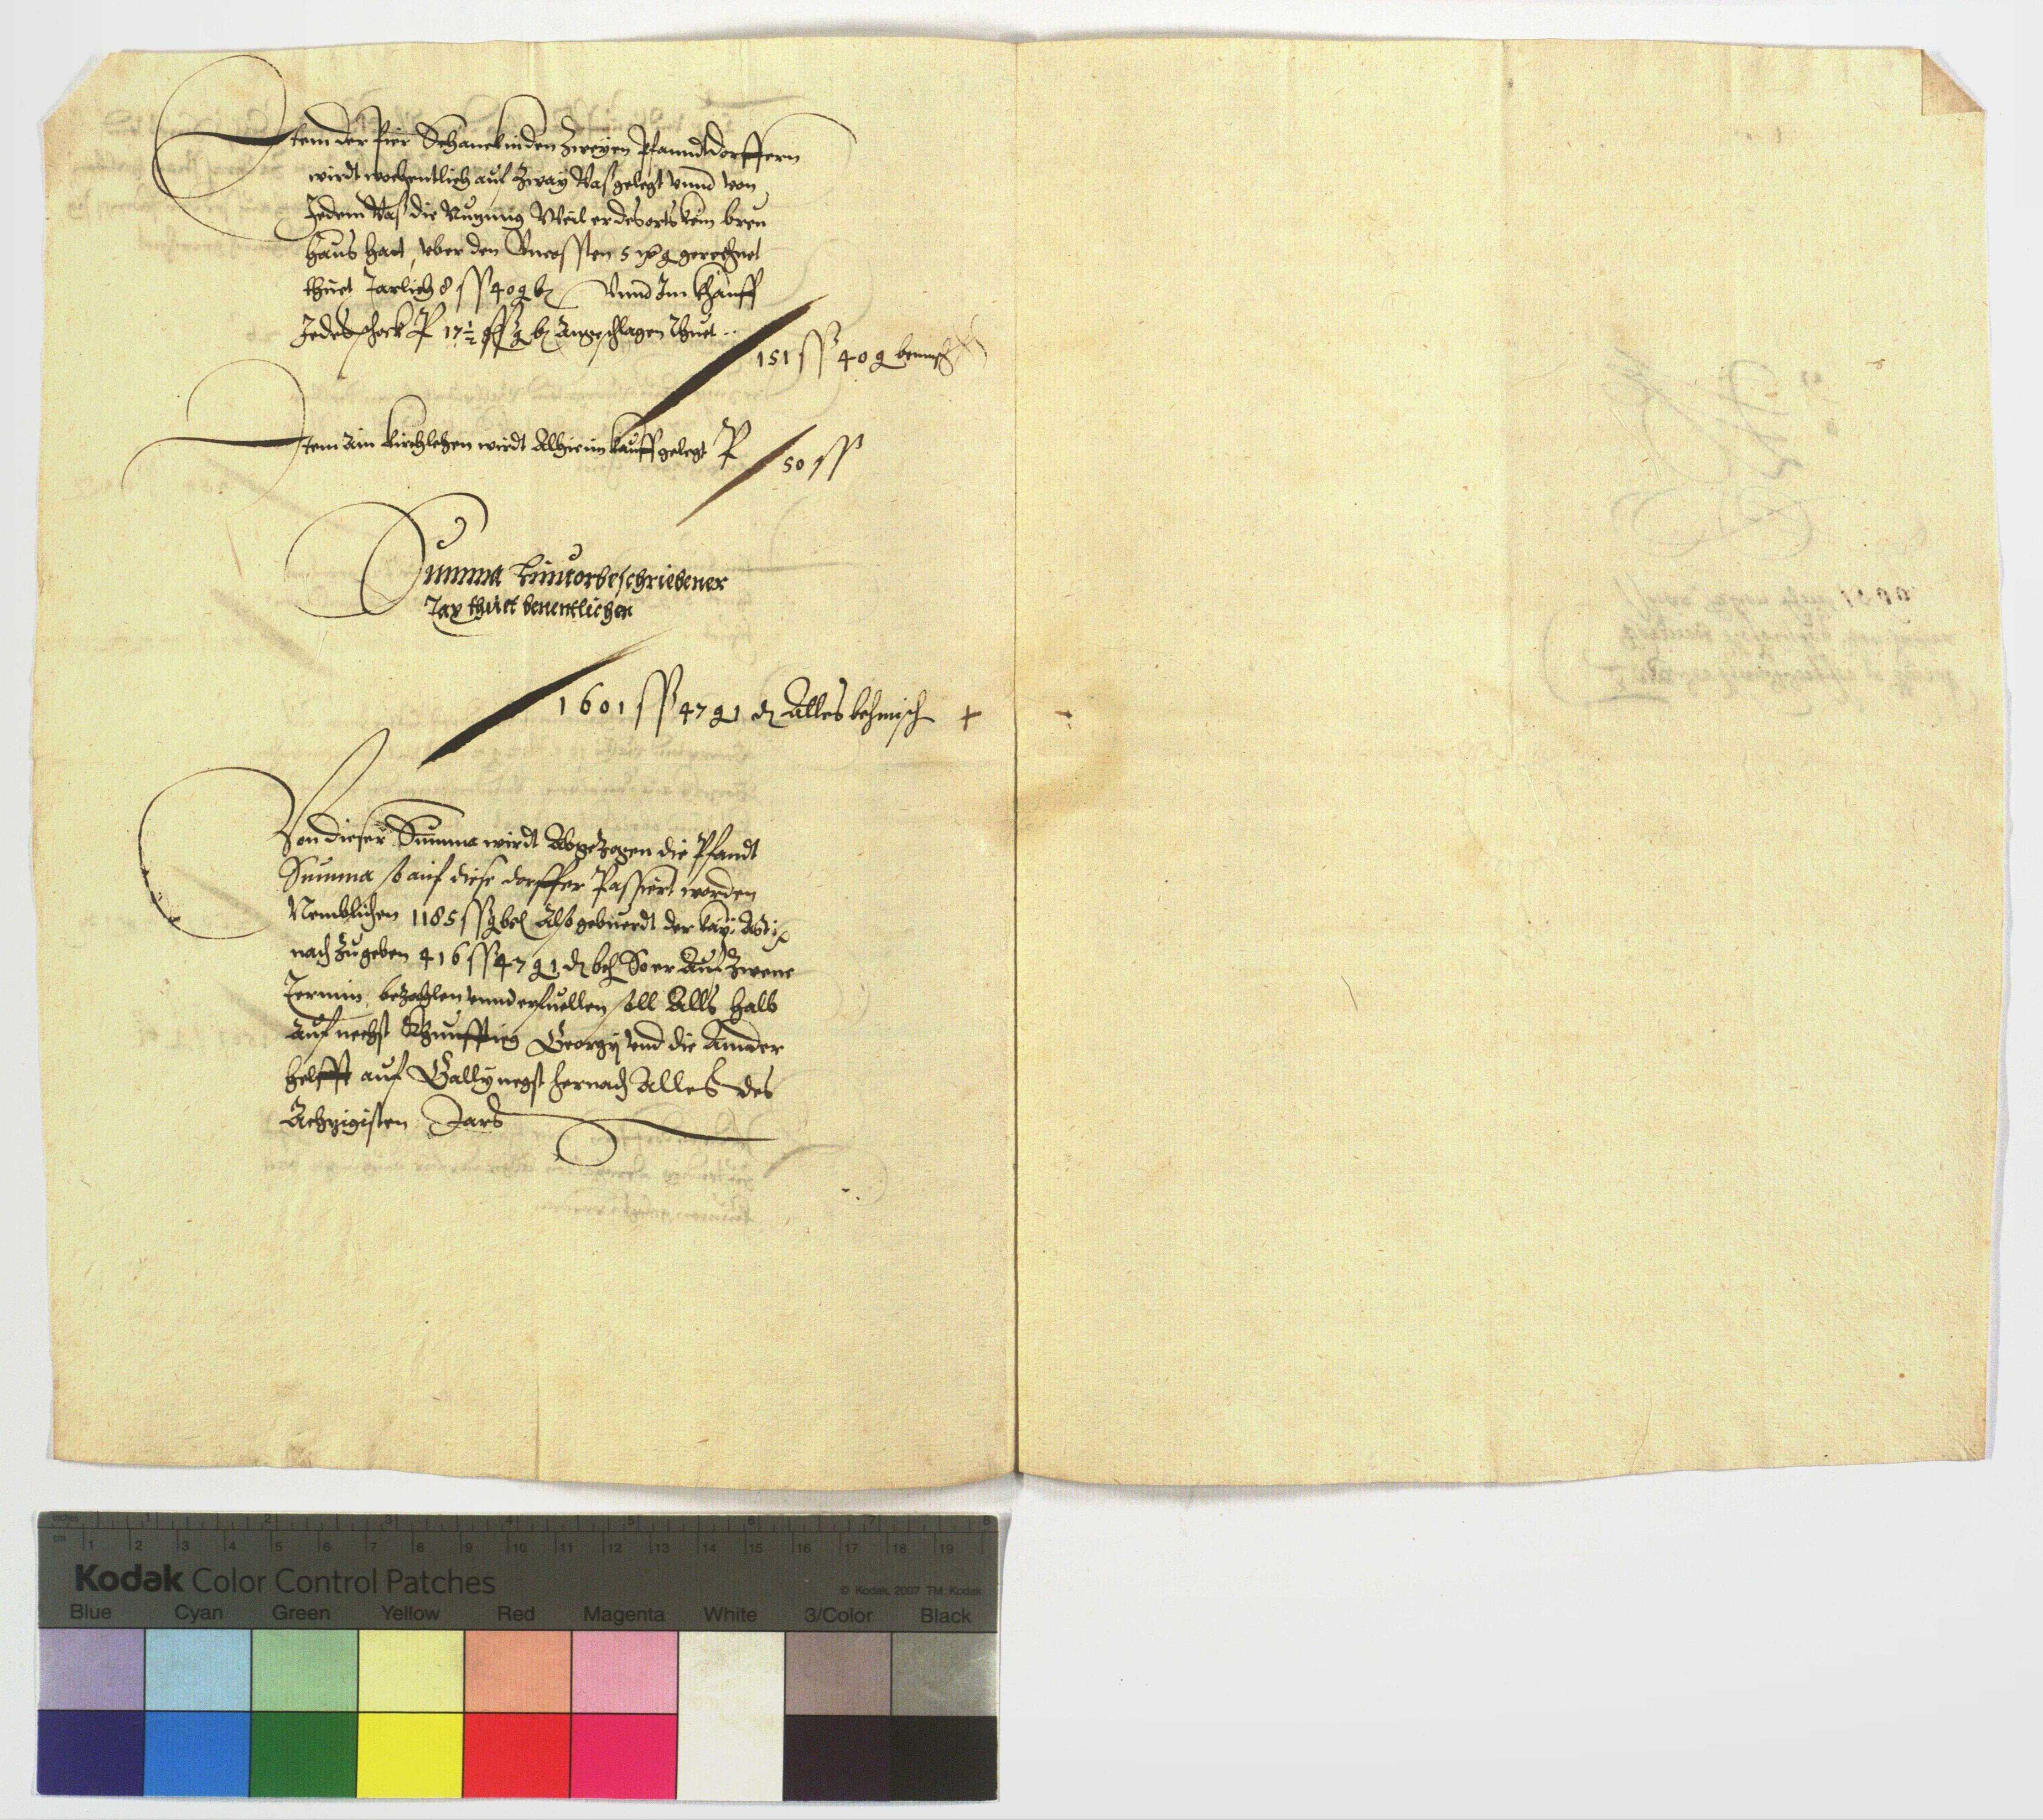 Item der Pier Schanck in den Zweyen Pfanndtdorffern
wirdt wochentlich auf Zway Vas gelegt vnnd von
Jedem Vas die Nuzung Weil er des orts kein breu
haus hat, vber den Vncossten 5 gerechnet
thuet Jarlich 8 ss 40 g b Vnnd Im khauff
Jedes schock P 17½ ss g b Angeschlagen Thuet
151 ss 40 g bemisch
Item Ain Kirchlehen wirdt Alhie im kauff gelegt P
50 ss
Summa hieuorbeschriebener
Tax thuet benentlichen
1601 ss 47 g 1 d Alles behmisch
Von dieser Summa wirdt Abgezogen die Pfandt
Summa so auf diese dorffer Passiert worden
Nemblichen 1185 ss g beh Also gebuerdt der kay: Mt:
nach Zugeben 416 ss 47 g 1 d beh So er Auf Zwene
Termin bezahlen vnnd erfuellen soll Alls halb
Auf nechst Khunfftig Georgy vnd die Annder
helffte auf Gally negst hernach Alles des
Achzigisten Jars
Kodak Color Control Patches
© Kodak, 2007 TM: Kodak
Blue Cyan Green Yellow Red Magenta White 3/Color Black